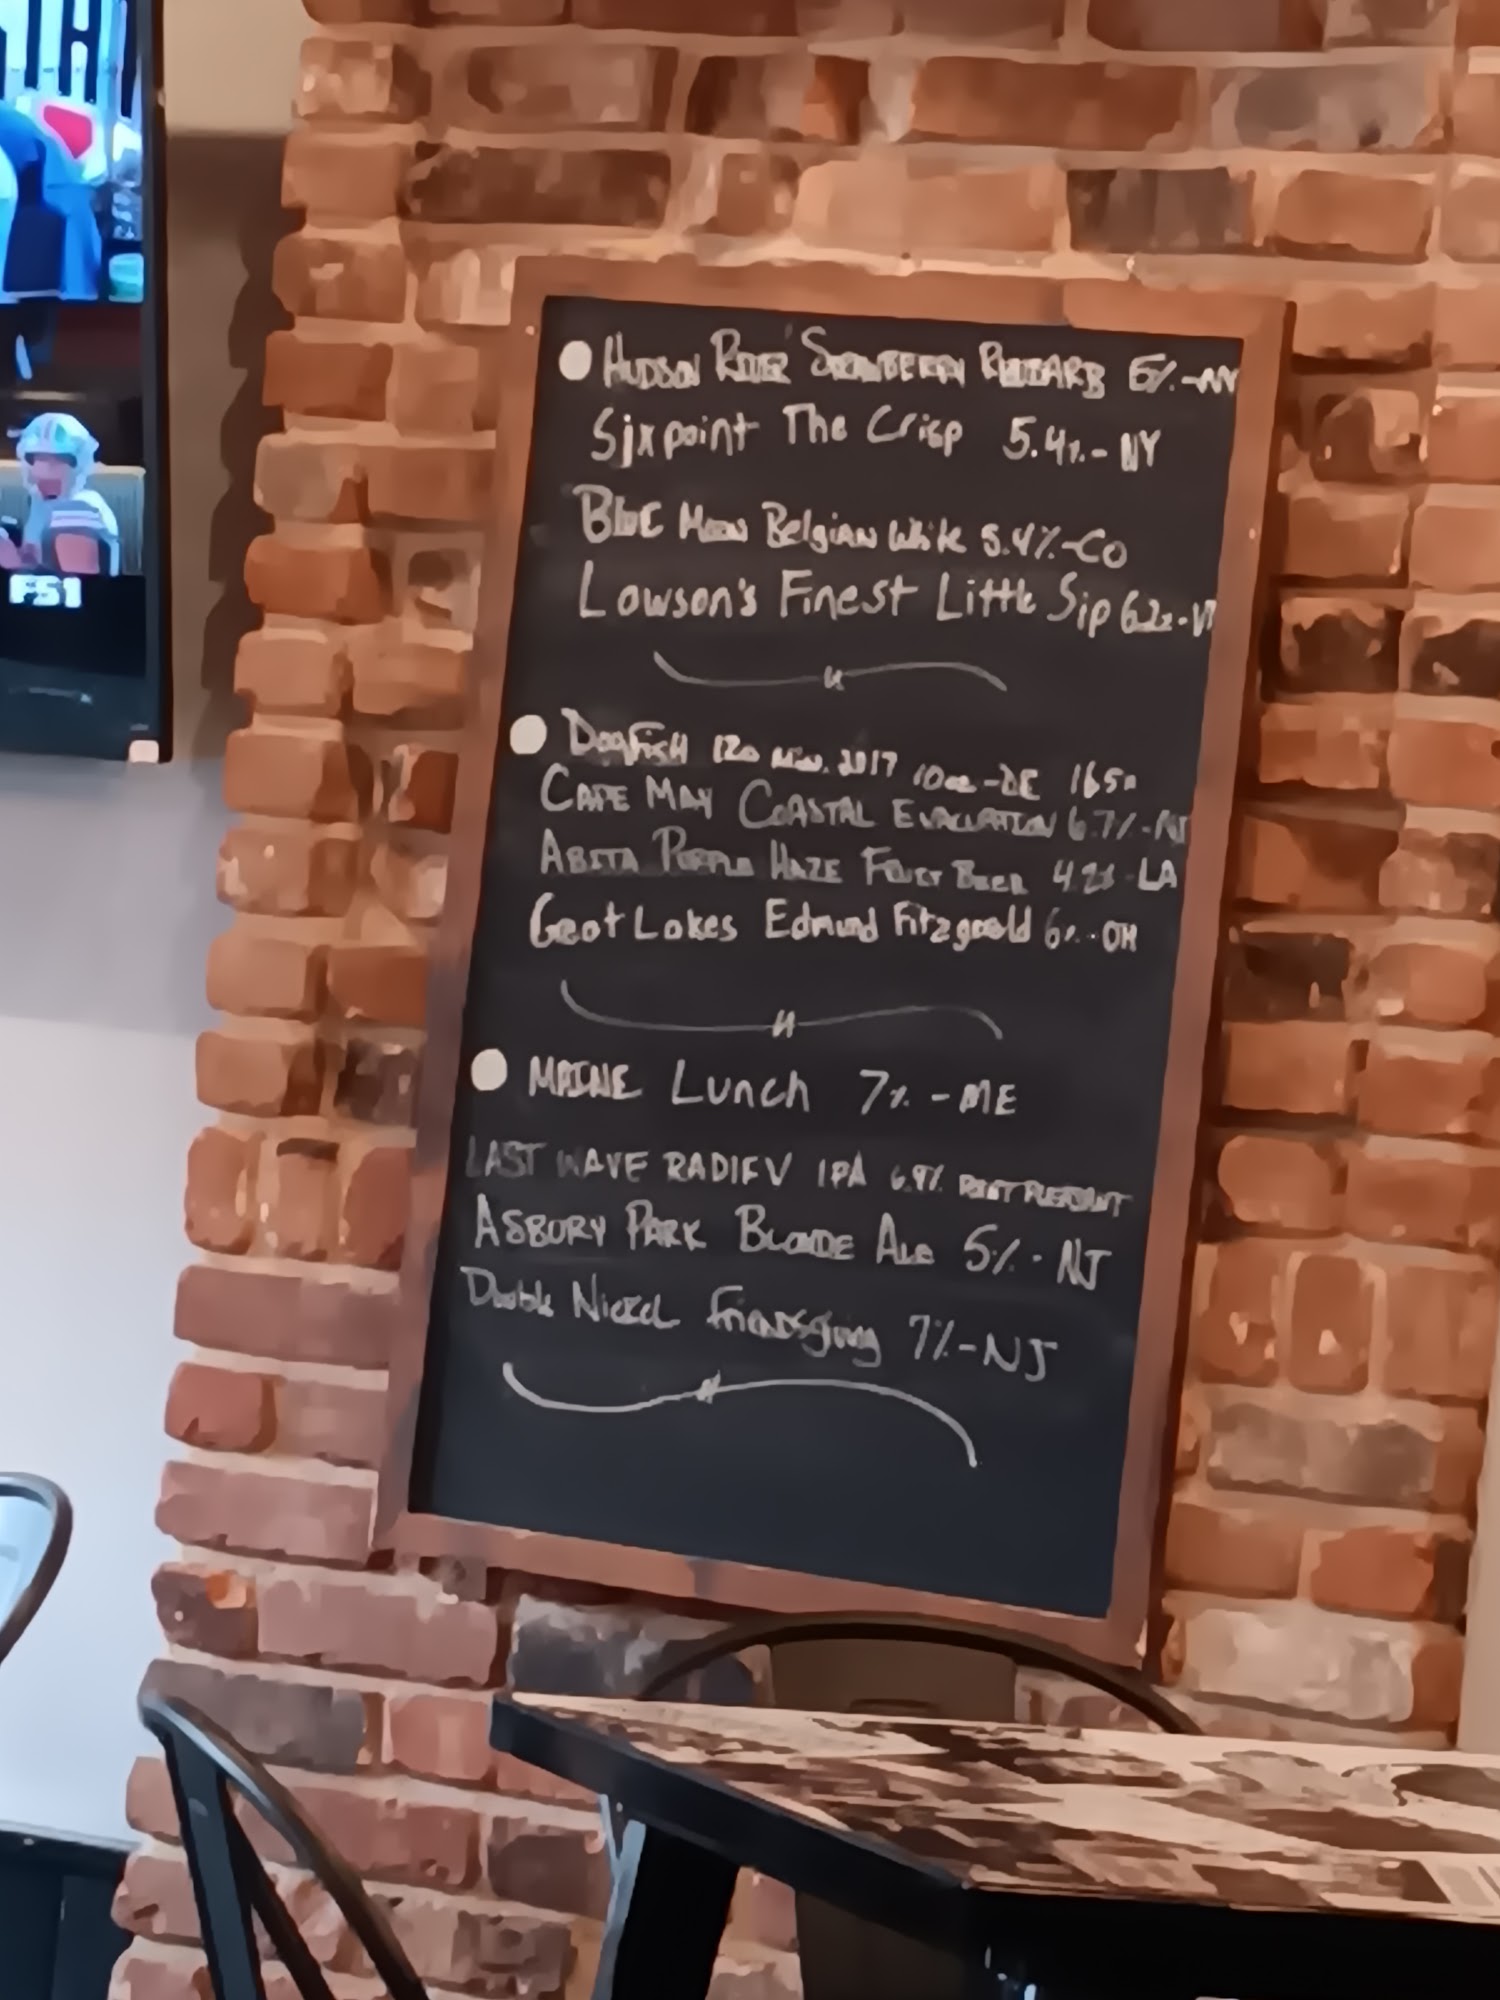 FS1
HUDSON RIVER STRAWBERRY RHUBARB 5%-NY
Sixpoint The Crisp 5.4%-NY
BLUE Moon Belgian White 5.4%-CO
Lawson's Finest Little Sip 6.2%-VT
DOGFISH 120 Min. 2017 10oz-DE
CAPE MAY COASTAL EVACUATION 6.7%-NJ
ABITA PURPLE HAZE FRUIT BEER 4.2%-LA
Great Lakes Edmund Fitzgerald 6%-OH
MAINE Lunch 7%-ME
LAST WAVE IPA POINT PLEASANT
ASBURY PARK BLONDE ALE 5%-NJ
Double Nickel Friendsgiving 7%-NJ